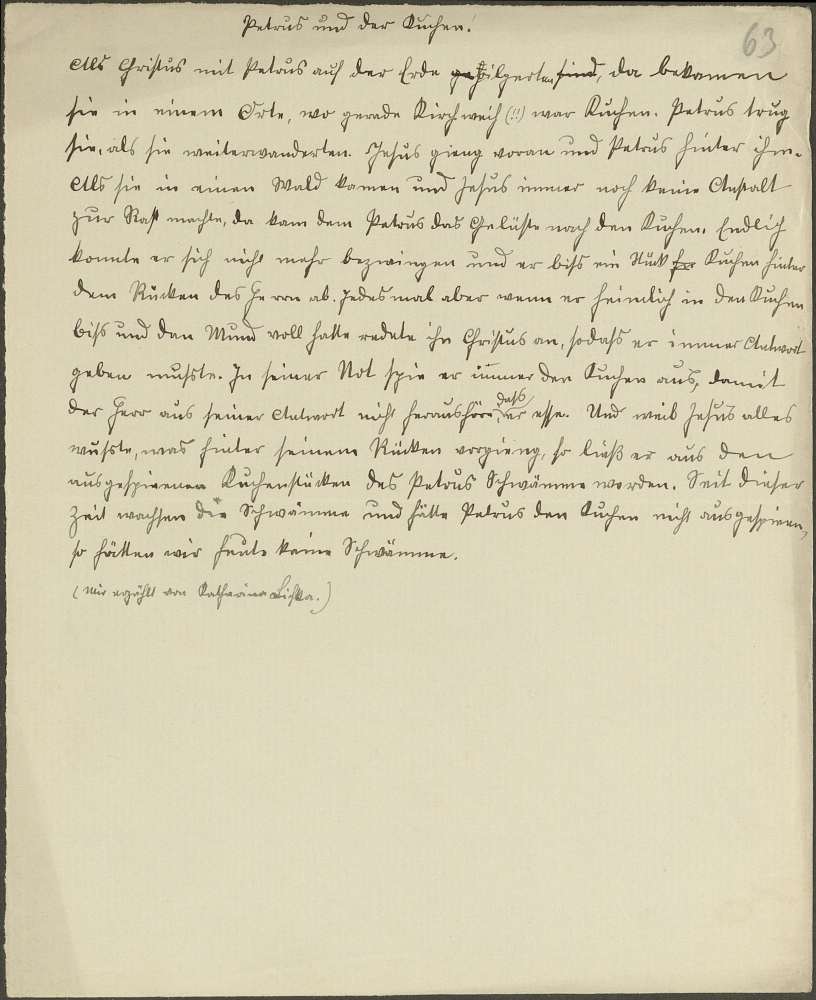 63
Petrus und der Kuchen!
Als Christus mit Petrus auf der Erde pilgerten, da bekamen
sie in einem Orte, wo gerade Kirchweih (!!) war Kuchen. Petrus trug
sie, als sie weiterwanderten. Jesus gieng voran und Petrus hinter ihm.
Als sie in einen Wald kamen und Jesus immer noch keine Anstalt
zur Rast machte, da kam dem Petrus das Gelüste nach den Kuchen. Endlich
konnte er sich nicht mehr bezwingen und er biss ein Stück Kuchen hinter
dem Rücken des Herrn ab. Jedesmal aber wenn er heimlich in den Kuchen
biss und den Mund voll hatte redete ihn Christus an, sodass er immer Antwort
geben musste. In seiner Not spie er immer den Kuchen aus, damit
der Herr aus seiner Antwort nicht heraushöre, dass er esse. Und weil Jesus alles
wusste, was hinter seinem Rücken vorgieng, so ließ er aus den
ausgespieenen Kuchenstücken des Petrus Schwämme werden. Seit dieser
Zeit wachsen die Schwämme und hätte Petrus den Kuchen nicht ausgespieen,
so hätten wir heute keine Schwämme.
(Mir erzählt von Katharina Lischka.)